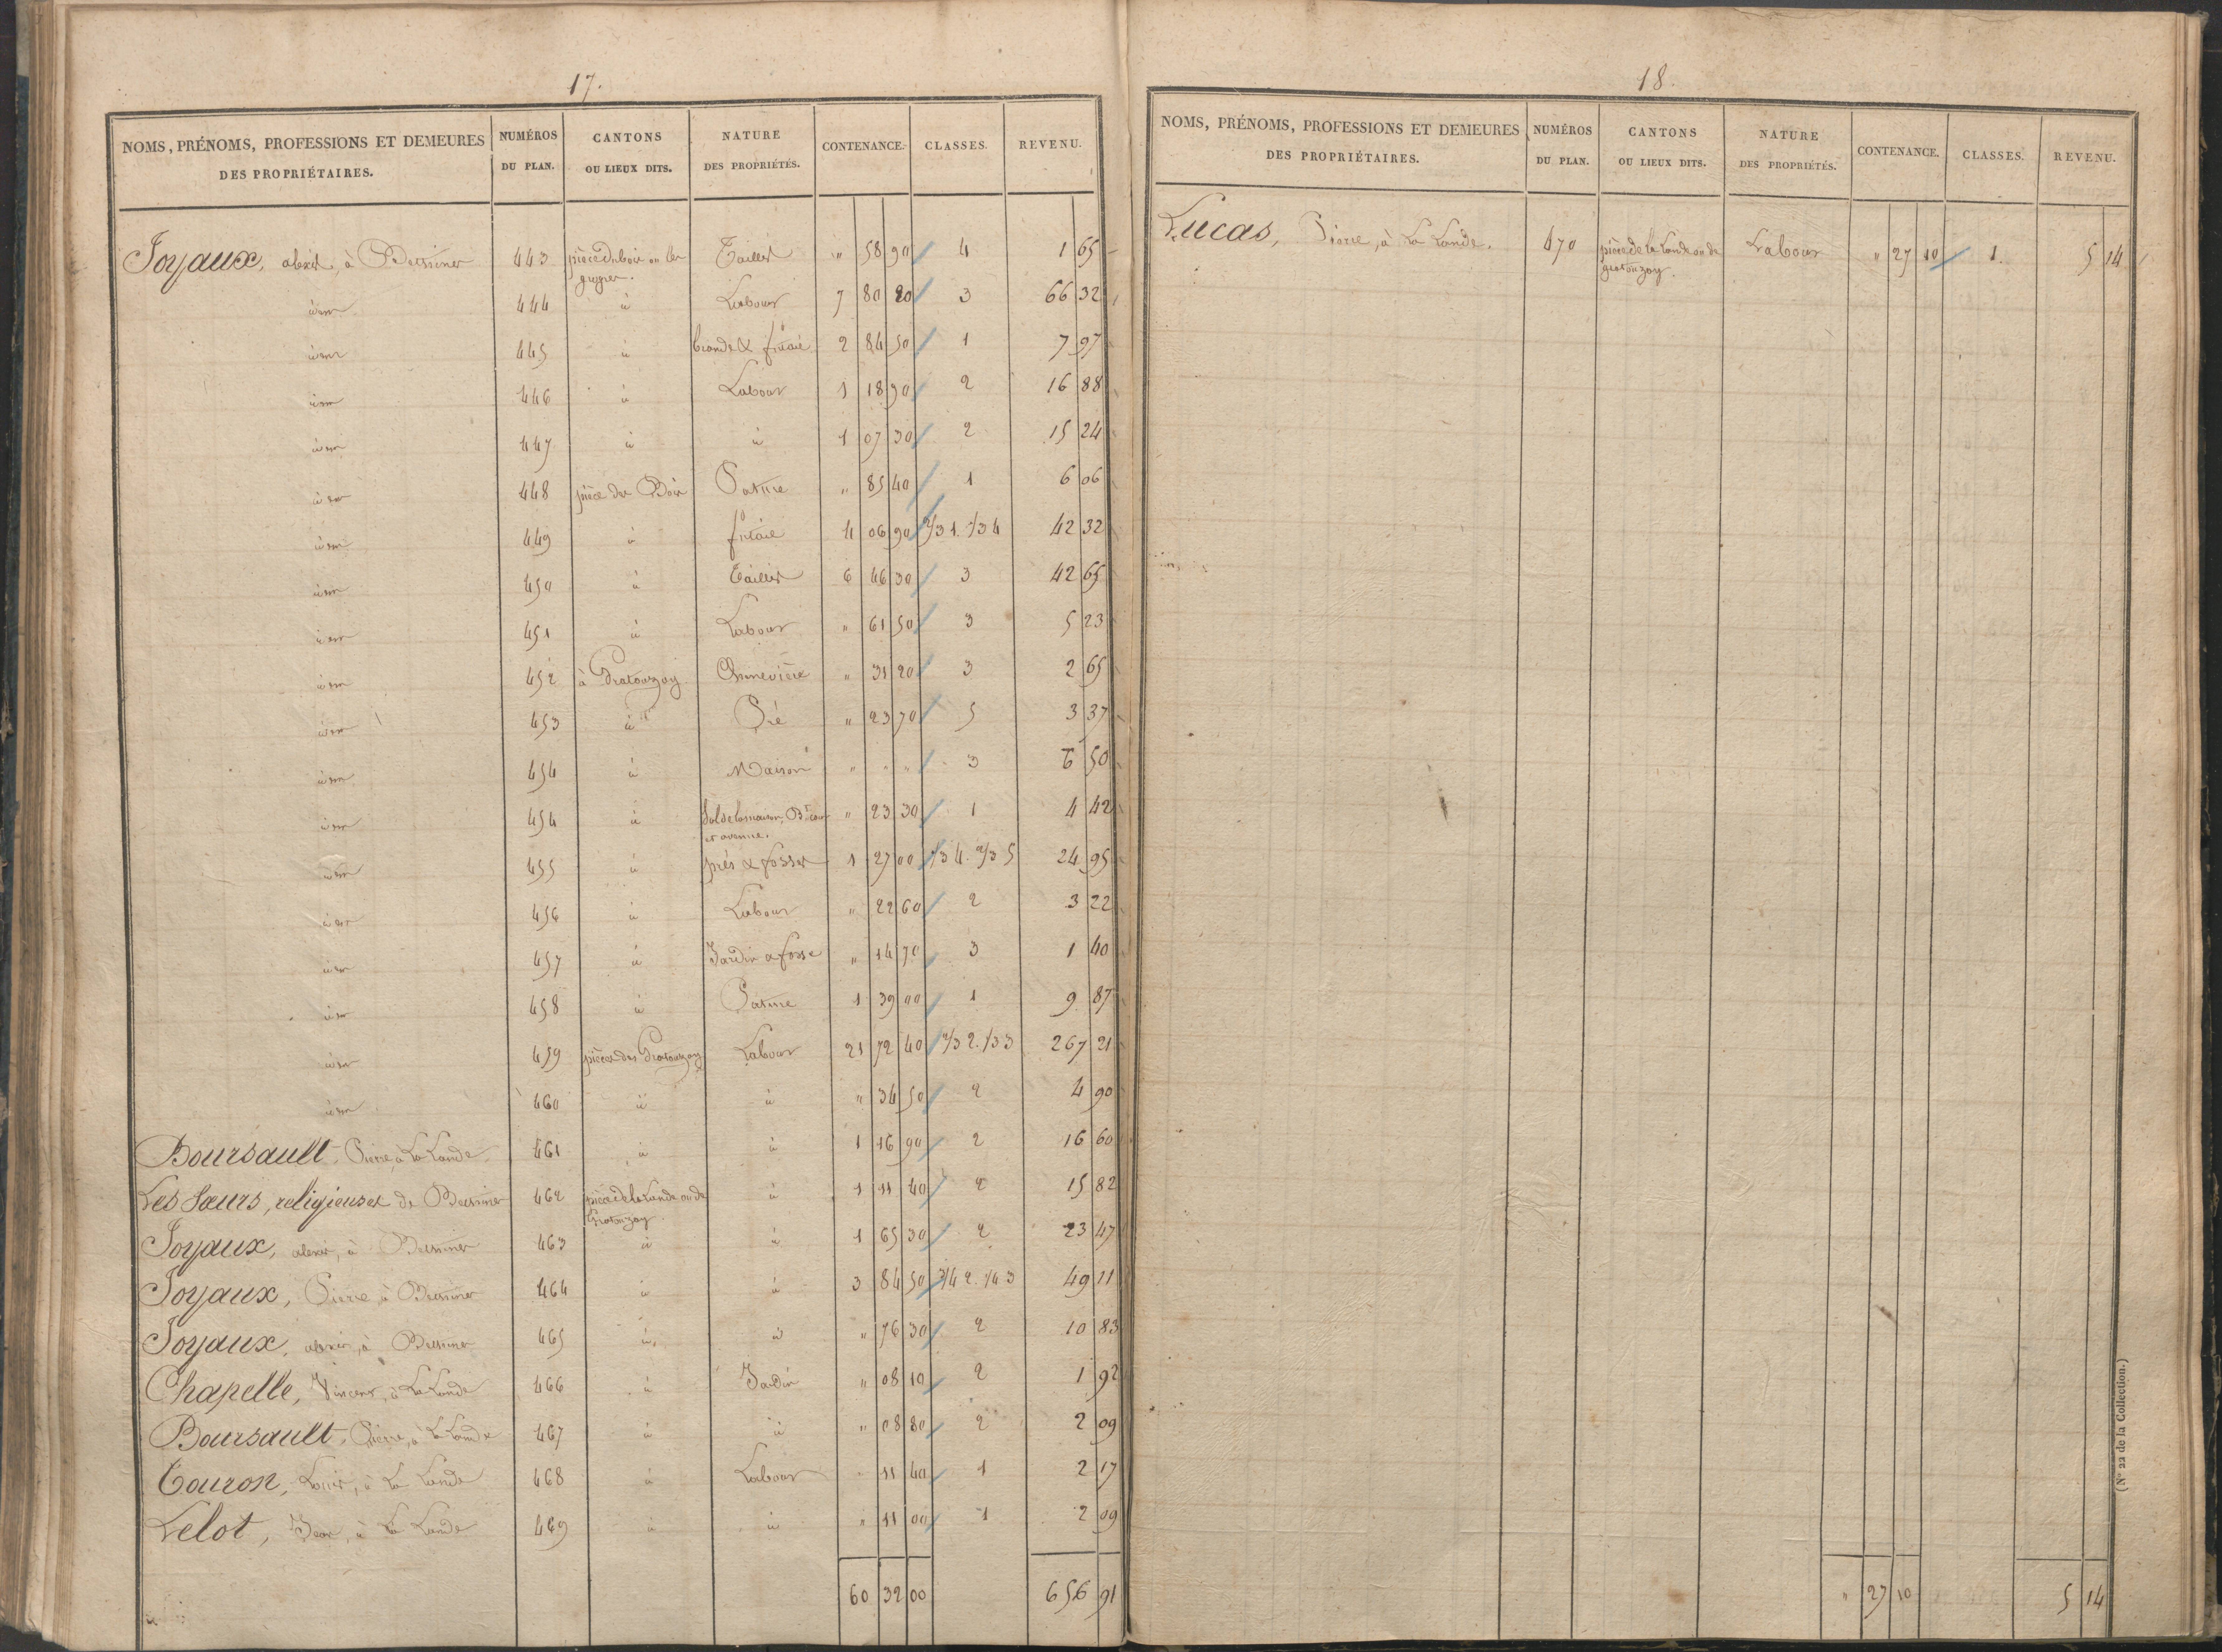 17.
NOMS, PRÉNOMS, PROFESSIONS ET DEMEURES DES PROPRIÉTAIRES. NUMÉROS DU PLAN. CANTONS OU LIEUX DITS. NATURE DES PROPRIÉTÉS. CONTENANCE. CLASSES. REVENU.
Joyaux, alexis, à 443 pièce du bois ou Taillis " 58 90 4 1 65
444 id Labour 7 80 20 3 66 32
445 id & futaie 2 84 50 1 7 97
446 id Labour 1 18 90 2 16 88
447 id id 1 07 30 2 15 24
448 pièce du Bois Pature " 85 40 1 6 06
449 id futaie 4 06 90 2/3 1. 1/3 4 42 32
450 id Taillis 6 46 30 3 42 65
451 id Labour " 61 50 3 5 23
452 à Gratouzay Cheneviere " 31 20 3 2 65
453 id Pré " 23 70 5 3 37
454 id Maison " " " 3 6 50
454 id Sol de la maison, Bt cour et avenue. " 23 30 1 4 42
455 id prés & fosses 1 27 00 1/3 4. 2/3 5 24 95
456 id Labour " 22 60 2 3 22
457 id Jardin & fosse " 14 70 3 1 40
458 id Pature 1 39 00 1 9 87
459 pièces des Gratouzay Labour 21 72 40 2/3 2. 1/3 3 267 21
460 id id " 34 50 2 4 90
Boursault, Pierre, à La Lande 461 id id 1 16 90 2 16 60
Les Sœurs, religieuses de 462 pièce de la Lande ou de Gratouzay. id 1 11 40 2 15 82
Joyaux, alexis, à 463 id id 1 65 30 2 23 47
Joyaux, Pierre, à 464 id id 3 84 50 3/4 2. 1/4 3 49 11
Joyaux, alexis, à 465 id id " 76 30 2 10 83
Chapelle, Vincent, à La Lande 466 id Jardin " 08 10 2 1 92
Boursault, Pierre, à La Lande 467 id id " 08 80 2 2 09
Touron, Louis, à La Lande 468 id Labour " 11 40 1 2 17
Lelot, Jean, à La Lande 469 id id " 11 00 1 2 09
60 32 00 656 91
18.
NOMS, PRÉNOMS, PROFESSIONS ET DEMEURES DES PROPRIÉTAIRES. NUMÉROS DU PLAN. CANTONS OU LIEUX DITS. NATURE DES PROPRIÉTÉS. CONTENANCE. CLASSES. REVENU.
Lucas, Pierre, à La Lande. 470 pièce de la Lande ou de gratouzay. Labour " 27 10 1. 5 14
" 27 10 5 14
(N° 22 de la Collection.)